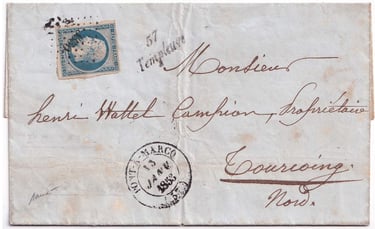 57
Templeuve
Monsieur
henri Wattel Campion, Propriétaire
Tourcoing.
Nord.
PONT-A-MARCQ
13
JANV.
1853